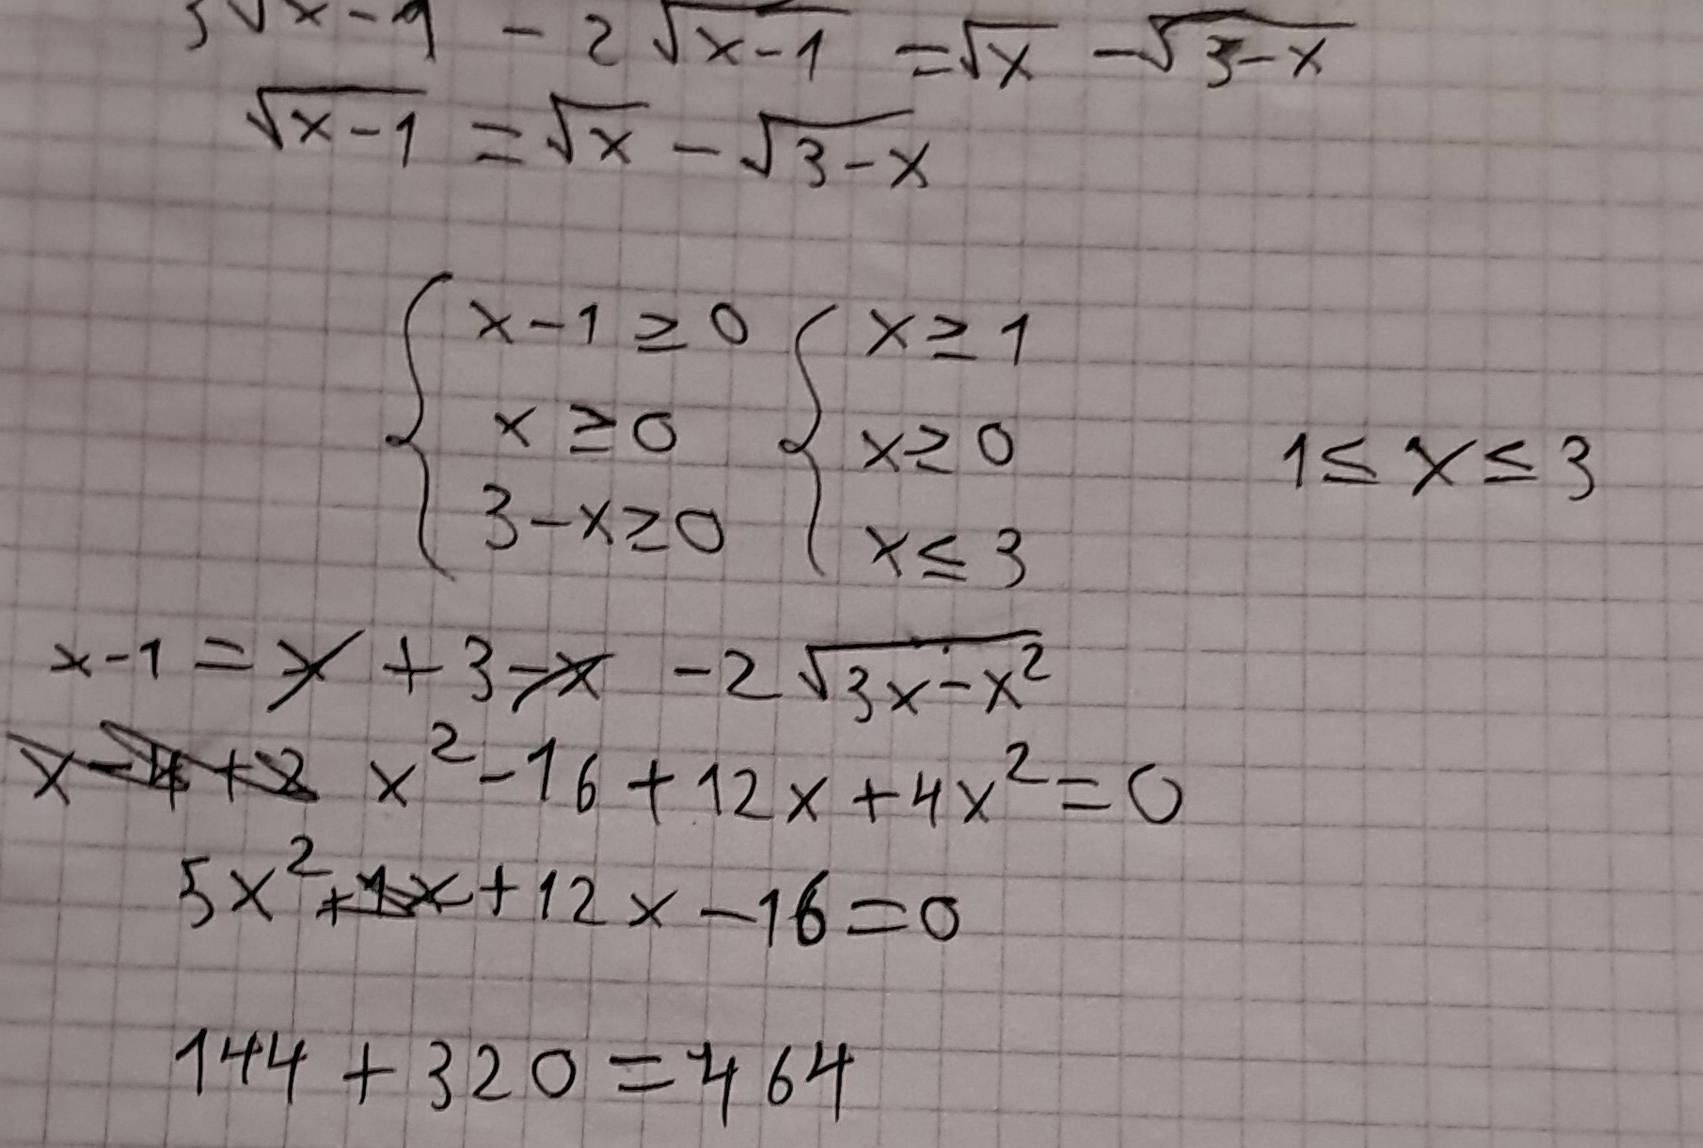 3√x-1 - 2√x-1 = √x - √3-x
√x-1 = √x - √3-x
{ x-1≥0 { x≥1
x≥0 x≥0 1≤x≤3
3-x≥0 x≤3
x-1 = x + 3-x -2√3x-x²
x-4+2 x²-16+12x+4x²=0
5x²+1x+12x-16=0
144+320=464